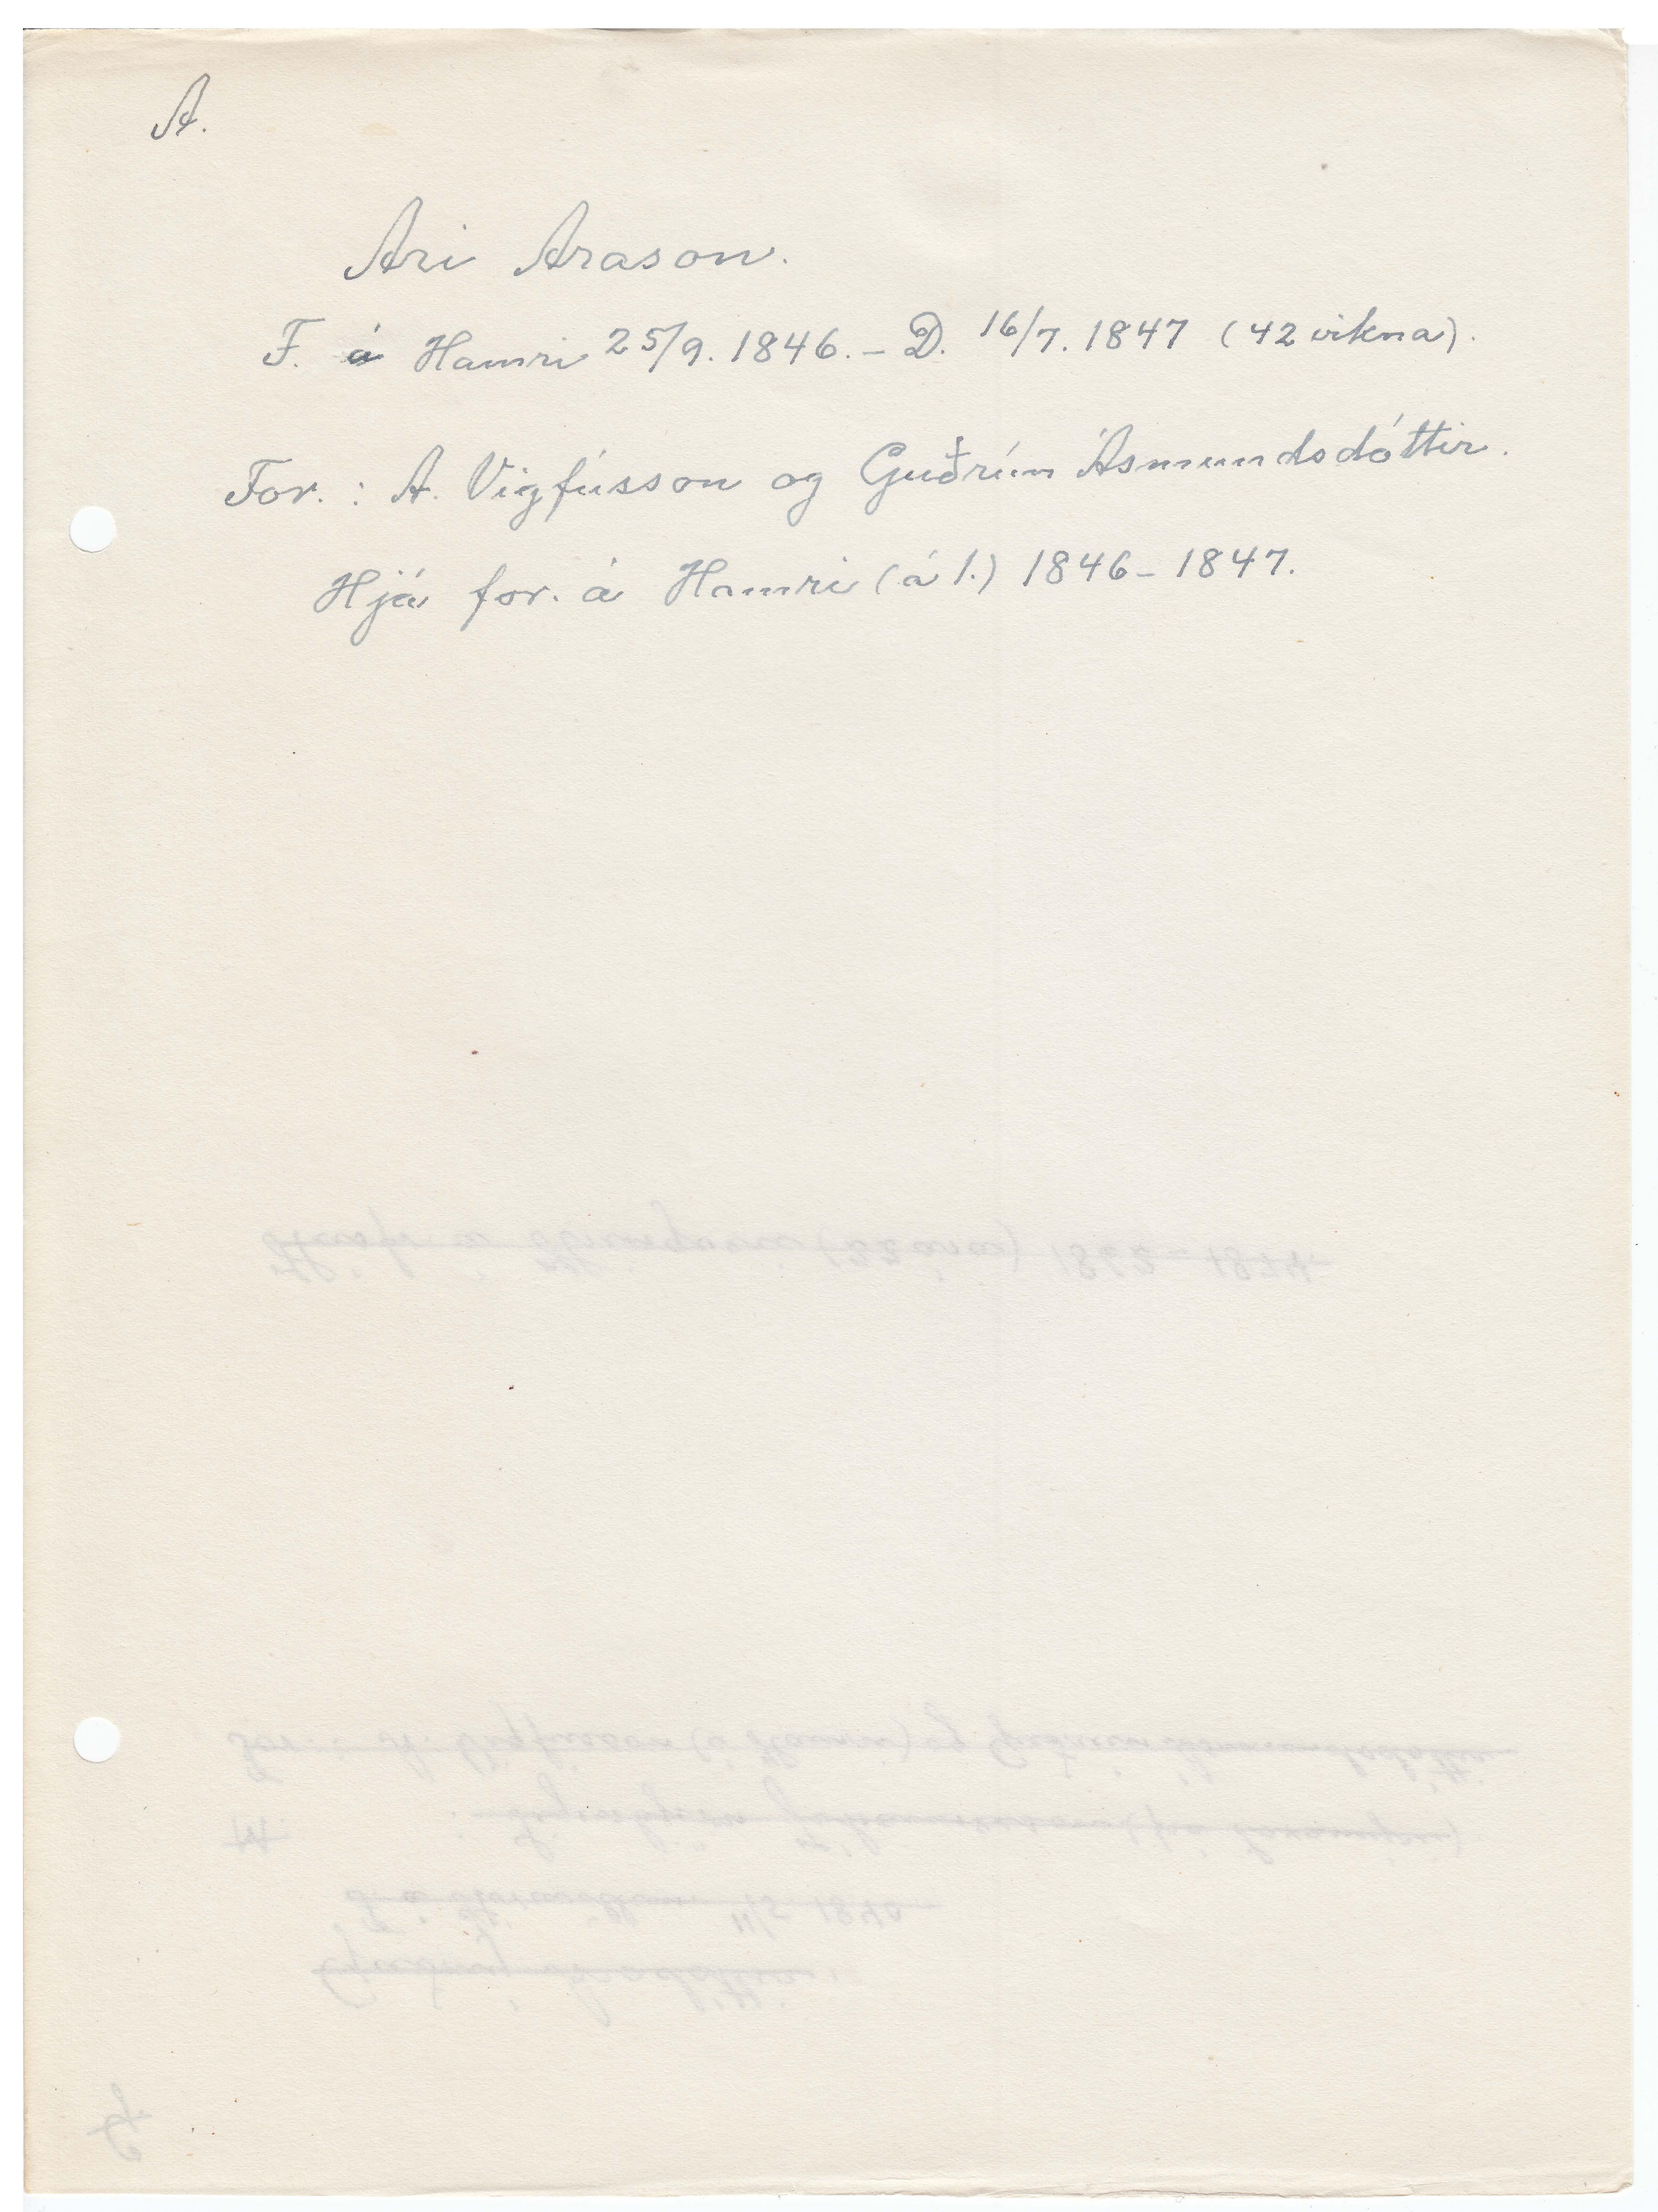 A.
Ari Arason.
F. á Hamri 25/9. 1846. - D. 16/7. 1847 (42 vikna).
For. : A. Vigfússon og Guðrún Ásmundsdóttir.
Hjá for. á Hamri (á 1.) 1846 - 1847.